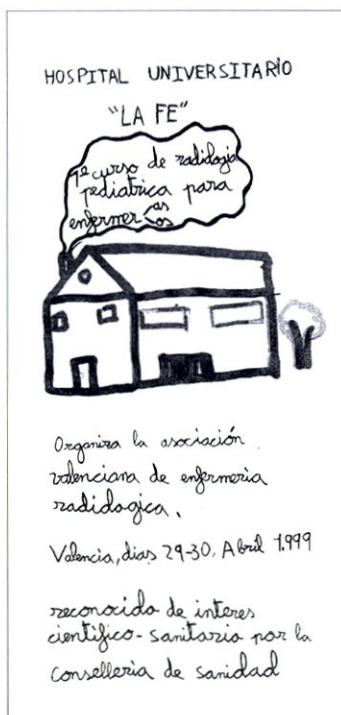 HOSPITAL UNIVERSITARIO
"LA FE"
1º curso de radidogia
pediatrica para
enfermer<as
os
Organiza la asociación
valenciana de enfermeria
radidagica.
Valencia, dias 29-30, Abril 1.999
reconocido de interes
cientifico-sanitario por la
Conselleria de sanidad